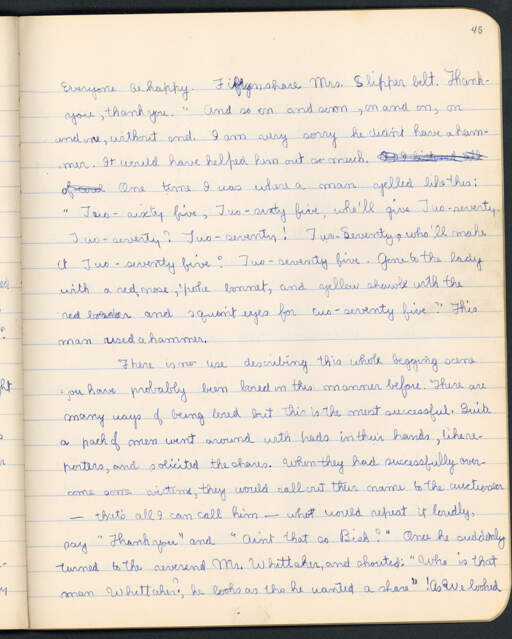 45
Everyone be happy. Fifty share Mrs. Slipper belt. Thank-
you, thank you." And so on and soon, on and on, on
and on, without end. I am very sorry he didn't have a ham-
mer. It would have helped him out so much.
One time I was where a man yelled like this:
"Two-sixty five, Two-sixty five, who'll give Two-seventy.
Two-seventy? Two-seventy! Two-Seventy, who'll make
it Two-seventy five? Two-seventy five. Gone to the lady
with a red, nose, 'poke bonnet, and yellow shawls with the
red border and squint eyes for two-seventy five." This
man used a hammer.
There is no use describing this whole begging scene
you have probably been bored in this manner before. There are
many ways of being bored but this is the most successful. Quite
a pack of men went around with pads in their hands, like re-
porters, and solicited the shares. When they had successfully over-
come some victims, they would call out their name to the auctioneer
— that's all I can call him — who would repeat it loudly,
say "Thank you" and "Aint that so Bish?" Once he suddenly
turned to the reverend Mr. Whittaker, and shouted: "Who is that
man Whittaker?, he looks as tho he wanted a share"! As we looked